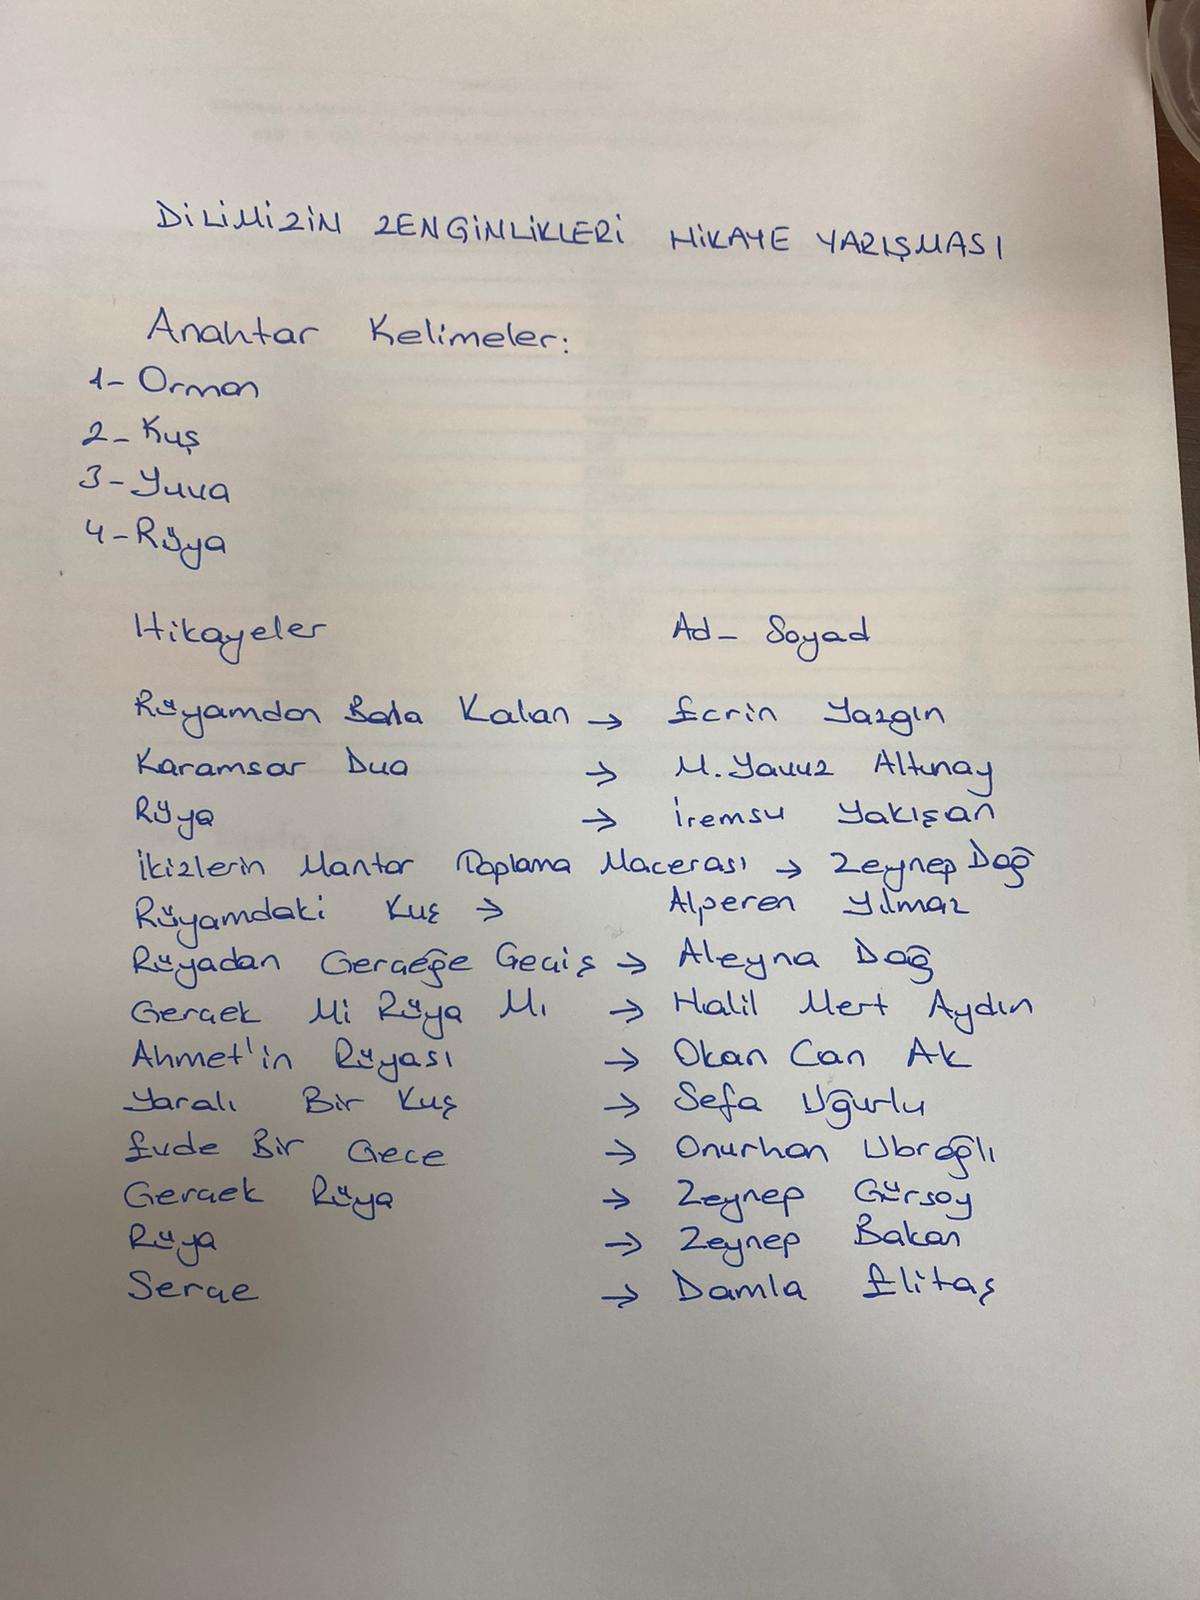 DİLİMİZİN ZENGİNLİKLERİ HİKAYE YARIŞMASI
Anahtar Kelimeler:
1- Orman
2- Kuş
3- Yuva
4- Rüya
Hikayeler Ad- Soyad
Rüyamdan Bana Kalan → Ecrin Yazgın
Karamsar Dua → M. Yavuz Altınay
Rüya → İremsu Yakışan
İkizlerin Mantar Toplama Macerası → Zeynep Dağ
Rüyamdaki Kuş → Alperen Yılmaz
Rüyadan Gerçeğe Geçiş → Aleyna Dağ
Gerçek Mi Rüya Mı → Halil Mert Aydın
Ahmet'in Rüyası → Okan Can Ak
Yaralı Bir Kuş → Sefa Uğurlu
Evde Bir Gece → Onurhan
Gerçek Rüya → Zeynep Gürsoy
Rüya → Zeynep Bakan
Serçe → Damla Elitaş